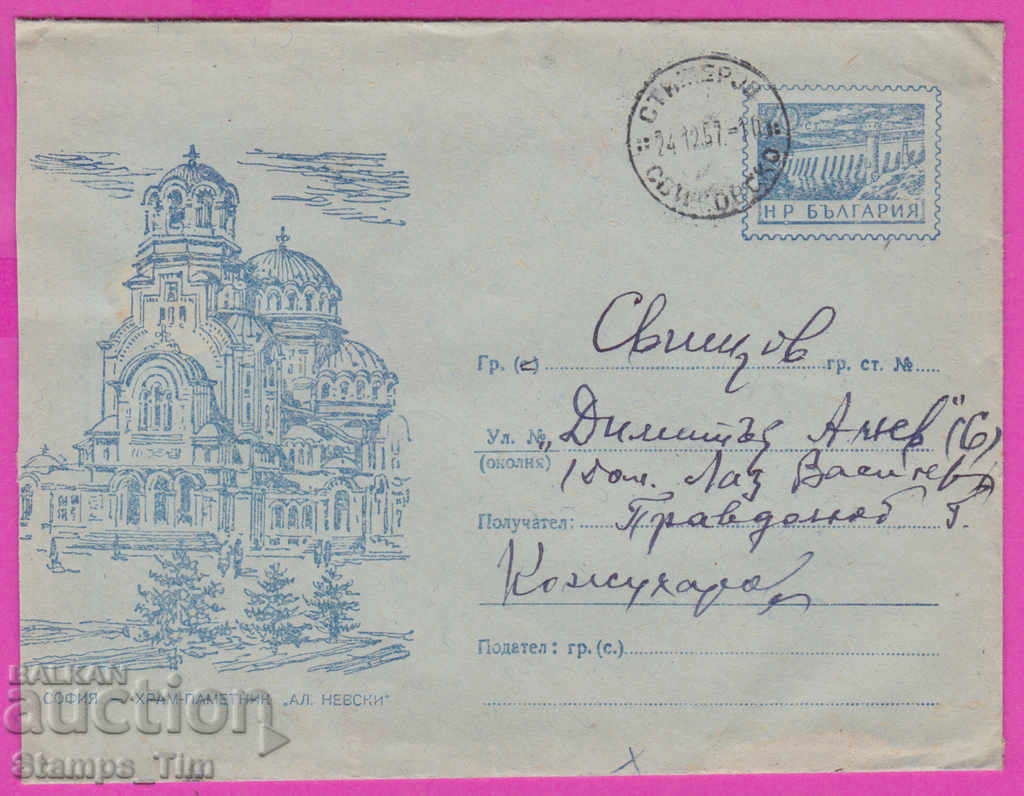 24.12.57.-10
НР БЪЛГАРИЯ
Свищов
Гр. (с) гр. ст. №
Ул. № „Димитър Анев" (6)
(околия) (дом. Лаз Василев)
Получател: Правдолюб Г.
Кожухаров
Подател: гр. (с.)
СОФИЯ — ХРАМ-ПАМЕТНИК „АЛ. НЕВСКИ"
BALKAN
auction
Stamps_Tim